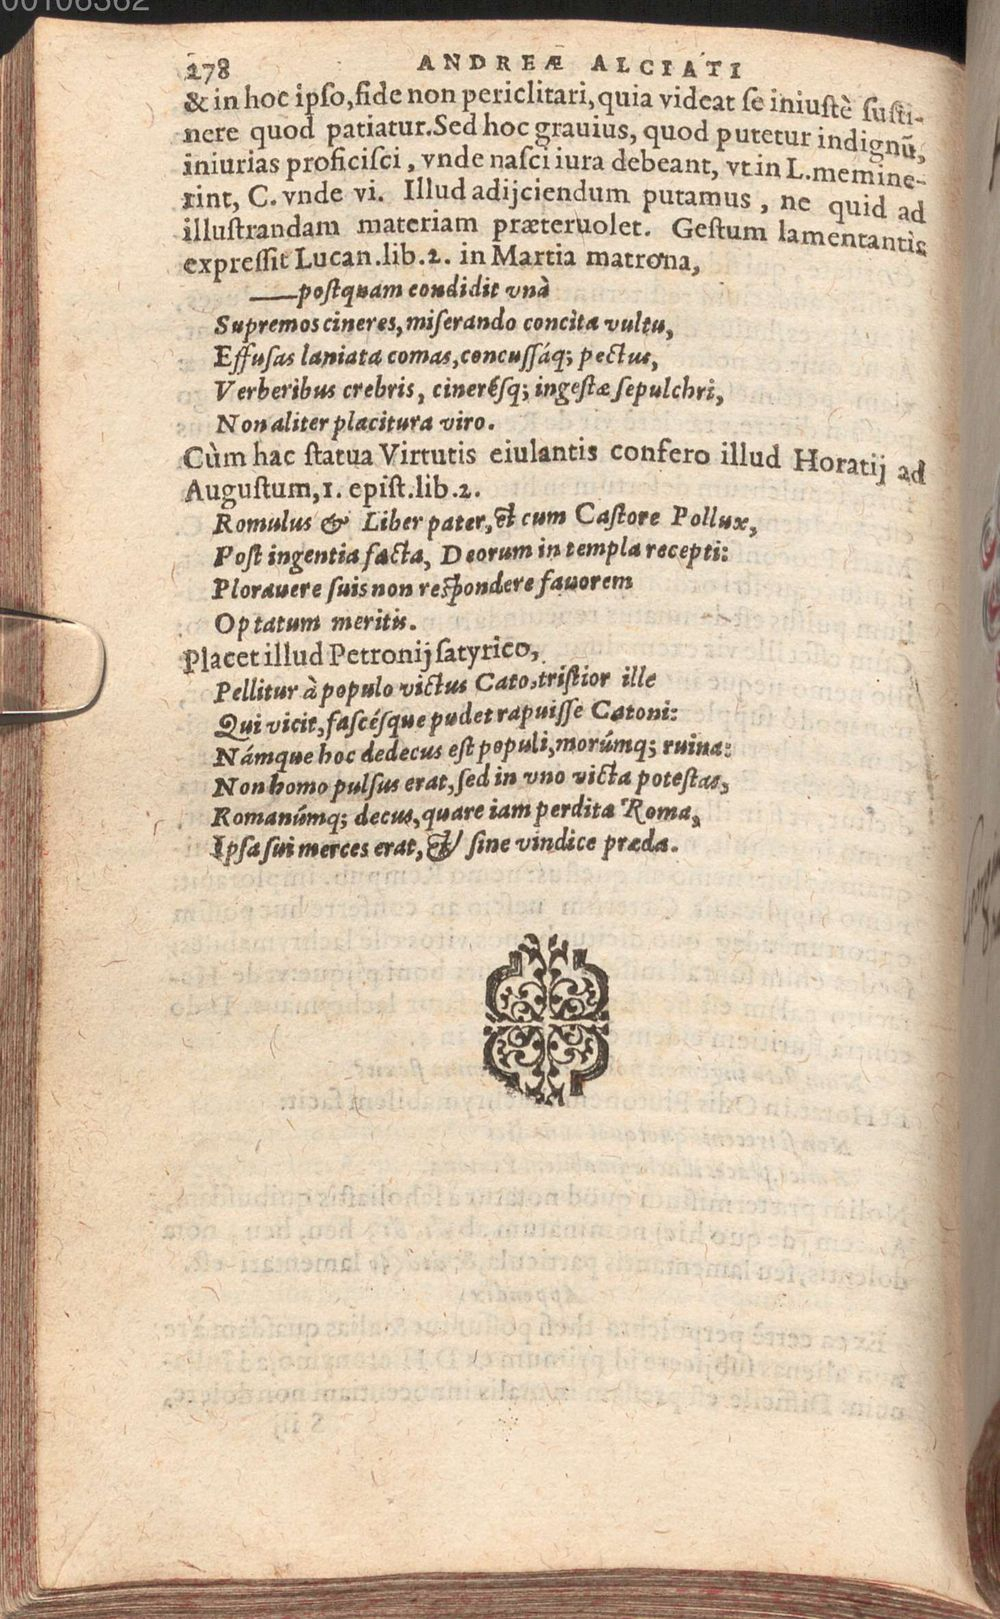 00106362
278 ANDREÆ ALCIATI
& in hoc ipso, fide non periclitari, quia videat se iniustè susti-
nere quod patiatur. Sed hoc grauius, quod putetur indignū,
iniurias proficisci, vnde nasci iura debeant, vt in L. memine-
rint, C. vnde vi. Illud adijciendum putamus, ne quid ad
illustrandam materiam præteruolet. Gestum lamentantis
expressit Lucan. lib. 2. in Martia matrona,
——postquam condidit vnà
Supremos cineres, miserando concita vultu,
Effusas laniata comas, concussáq; pectus,
Verberibus crebris, cinerésq; ingestæ sepulchri,
Non aliter placitura viro.
Cùm hac statua Virtutis eiulantis confero illud Horatij ad
Augustum, 1. epist. lib. 2.
Romulus & Liber pater, & cum Castore Pollux,
Post ingentia facta, Deorum in templa recepti:
Plorauere suis non respondere fauorem
Optatum meritis.
Placet illud Petronij satyrico,
Pellitur à populo victus Cato, tristior ille
Qui vicit, fascésque pudet rapuisse Catoni:
Námque hoc dedecus est populi, morúmq; ruina:
Non homo pulsus erat, sed in vno victa potestas,
Romanúmq; decus, quare iam perdita Roma,
Ipsa sui merces erat, & sine vindice præda.